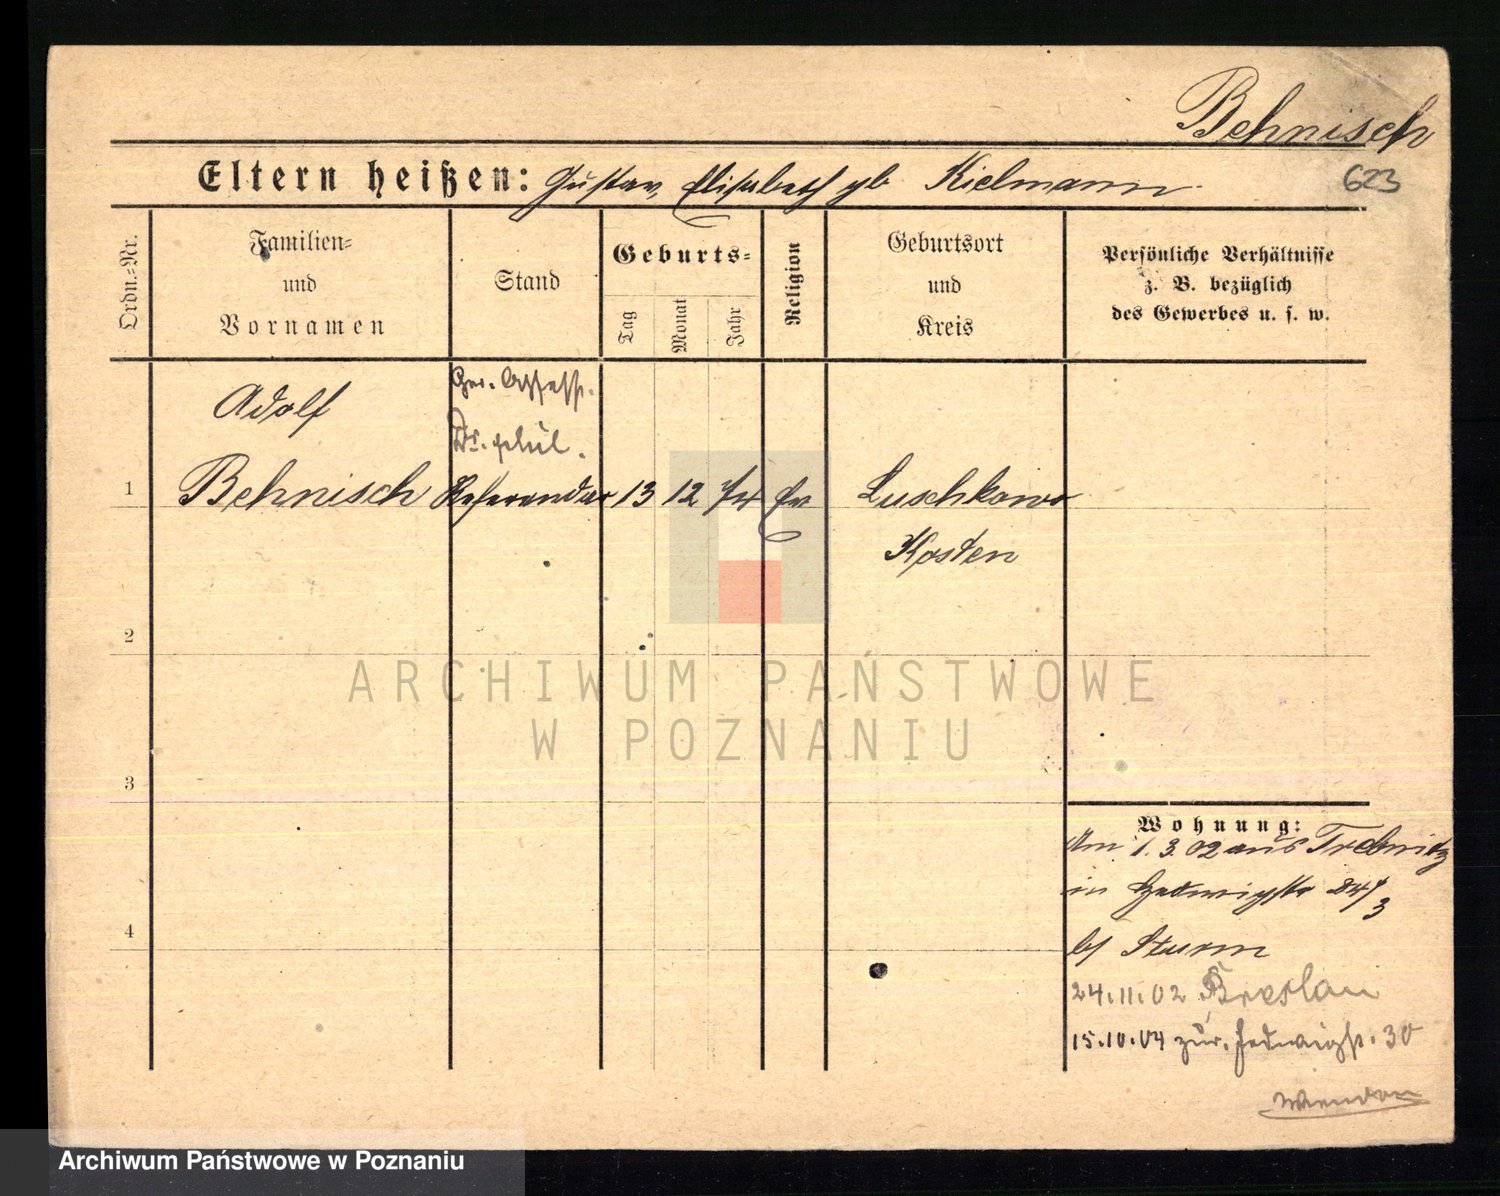 Behnisch
Eltern heißen: Gustav, Elisabeth gb Kielmann
623
Ordn.-Nr.
Familien-
und
Vornamen
Stand
Geburts-
Tag
Monat
Jahr
Religion
Geburtsort
und
Kreis
Persönliche Verhältnisse
z. B. bezüglich
des Gewerbes u. s. w.
Adolf
Ger. Assess.
Dr. phil.
1 Behnisch Referendar 13 12 Ev Luschkowo
Kosten
2
ARCHIWUM PAŃSTWOWE
W POZNANIU
3
Wohnung:
Am 1.3.02 aus Trebnitz
in Hedwigstr 24/3
by Sturm
4
24.11.02 Breslau
15.10.04 zur. Hedwigst. 30
Archiwum Państwowe w Poznaniu